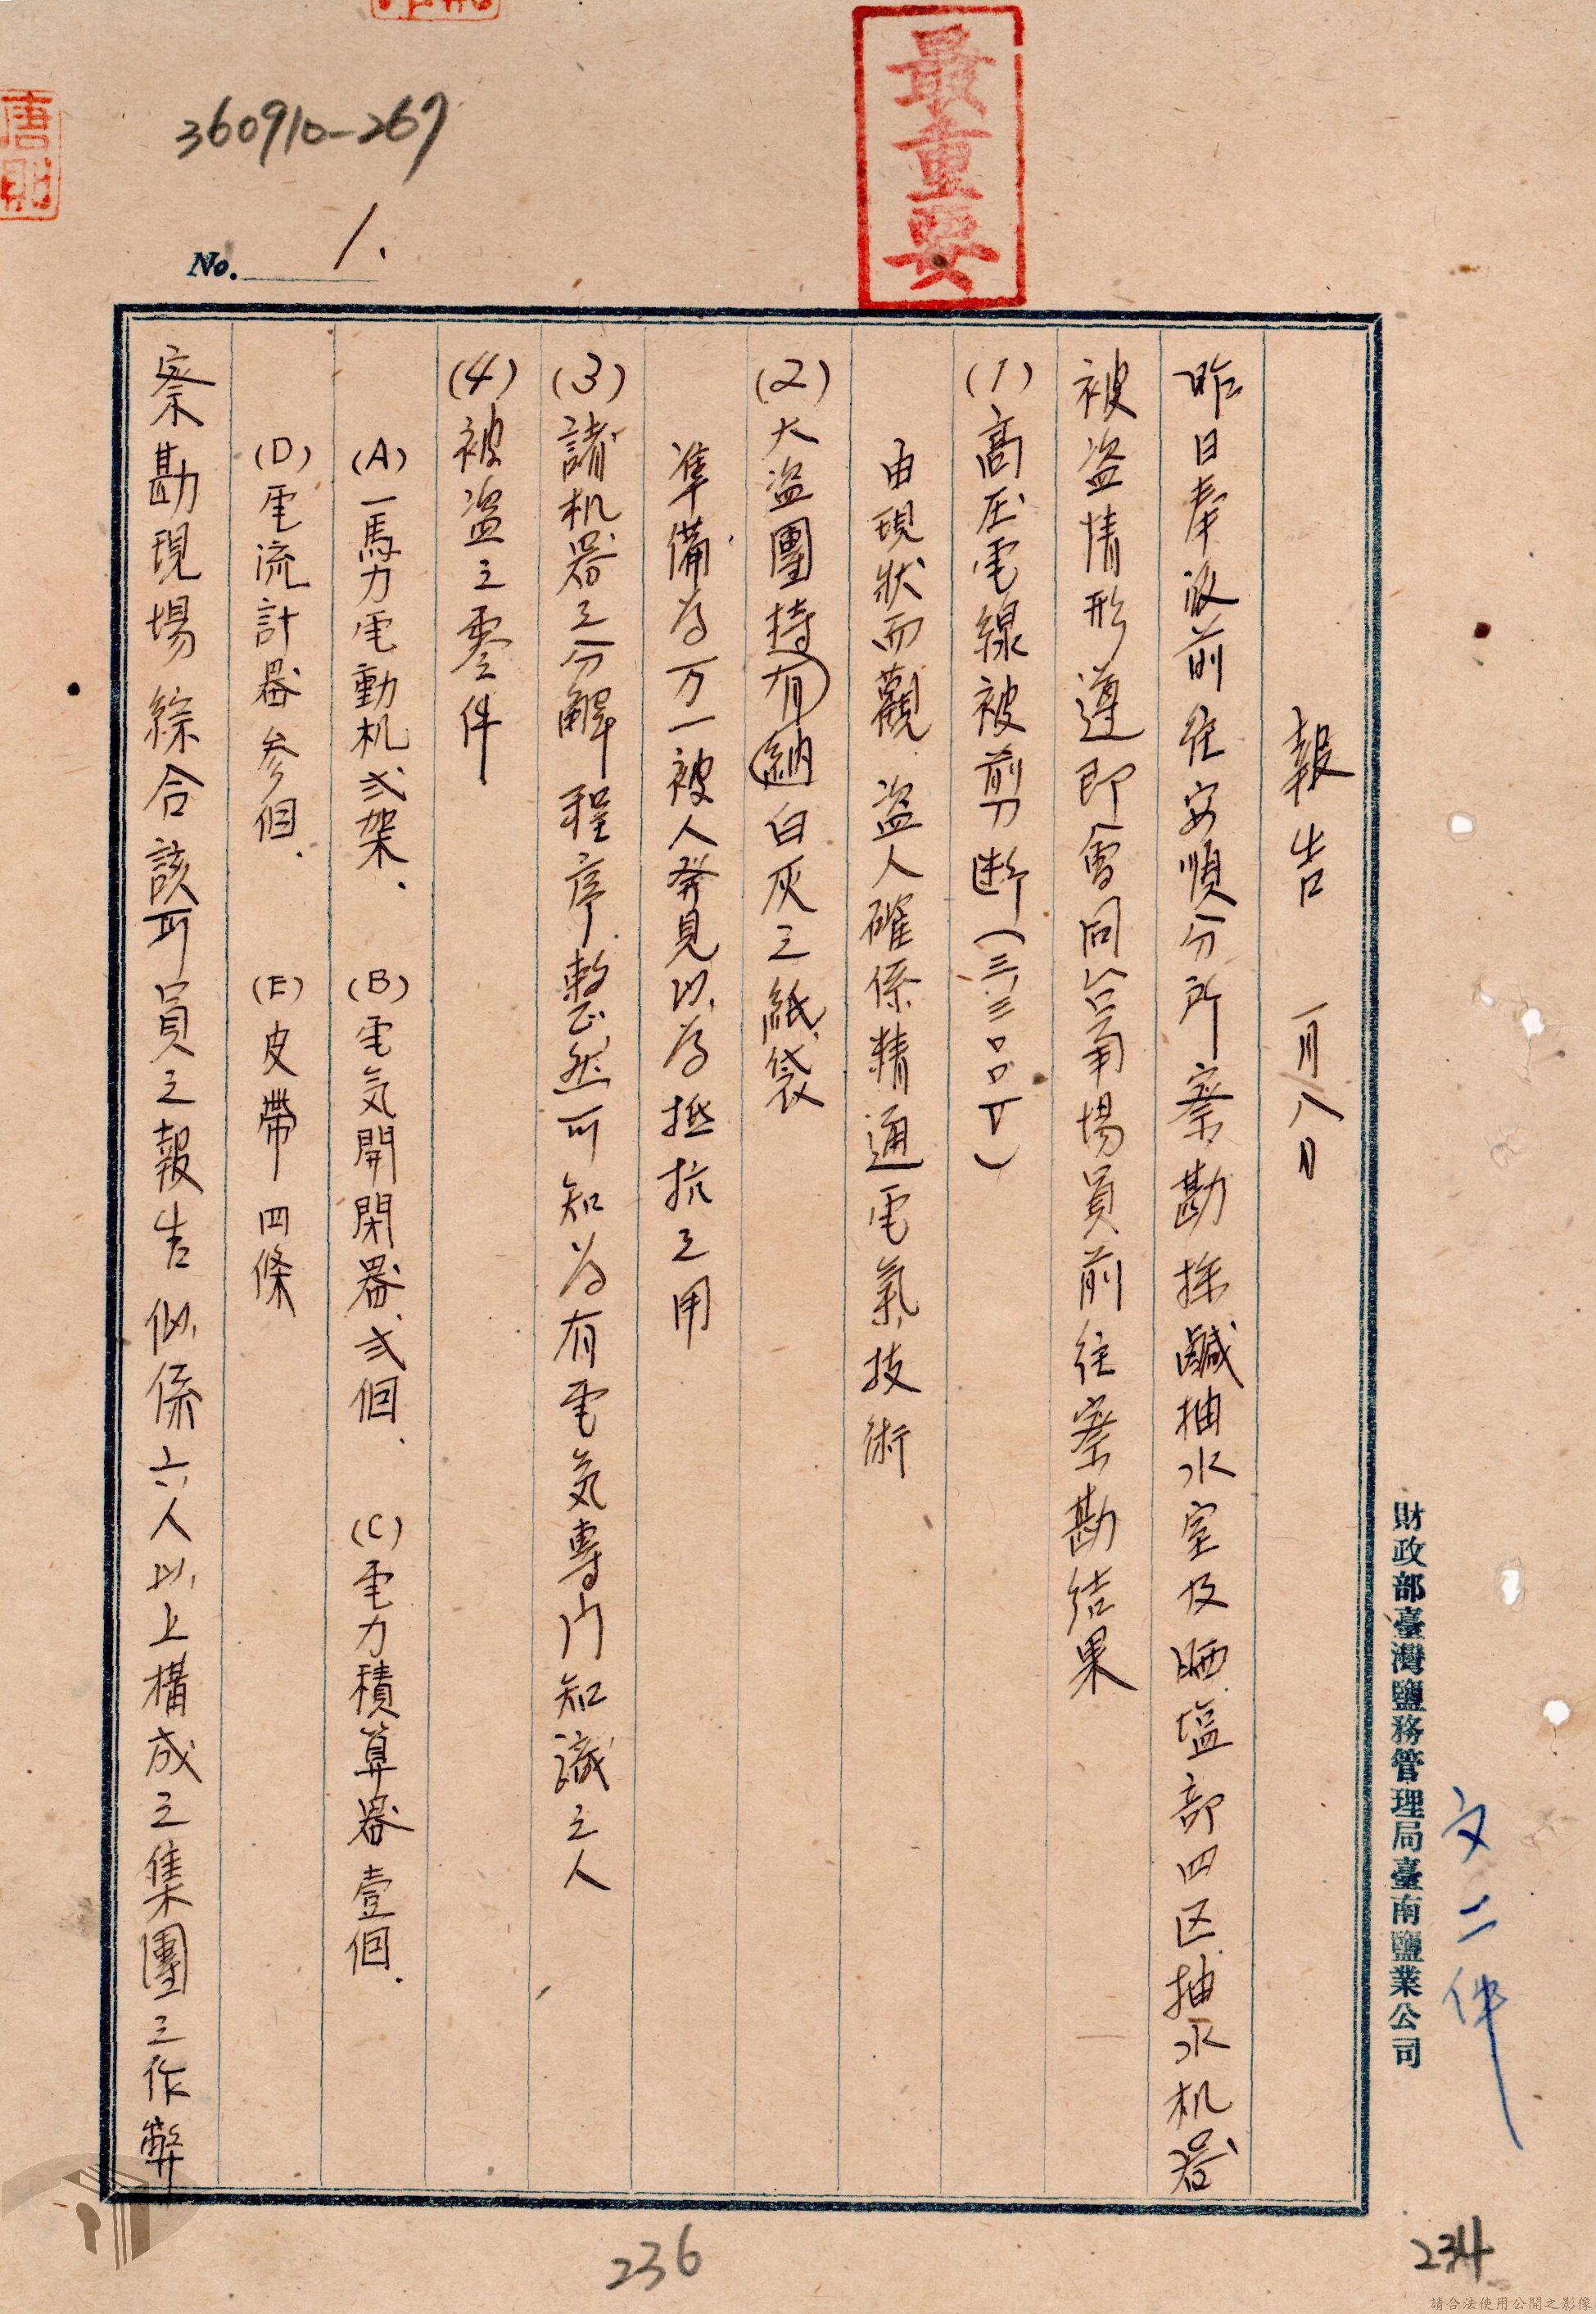 最重要
360910-267
No. 1.
報告 一月八日
昨日奉派前往安順分所察勘採鹹抽水室及晒塩部四区抽水机器
被盗情形遵即會同台電場員前往察勘結果
(1)高圧電線被剪断(三、三〇〇V)
由現狀而觀盗人確係精通電氣技術
(2)大盗團持有納白灰之紙袋
準備為万一被人発見以為抵抗之用
(3)諸机器之分解程序整然可知為有電気專门知識之人
(4)被盗之零件
(A)一馬力電動机弍架. (B)電気開閉器弍個. (C)電力積算器壹個.
(D)電流計器参個. (E)皮帶四條
察勘現場綜合該所員之報告似係六人以上構成之集團之作弊
財政部臺灣鹽務管理局臺南鹽業公司
文二件
236
234
請合法使用公開之影像